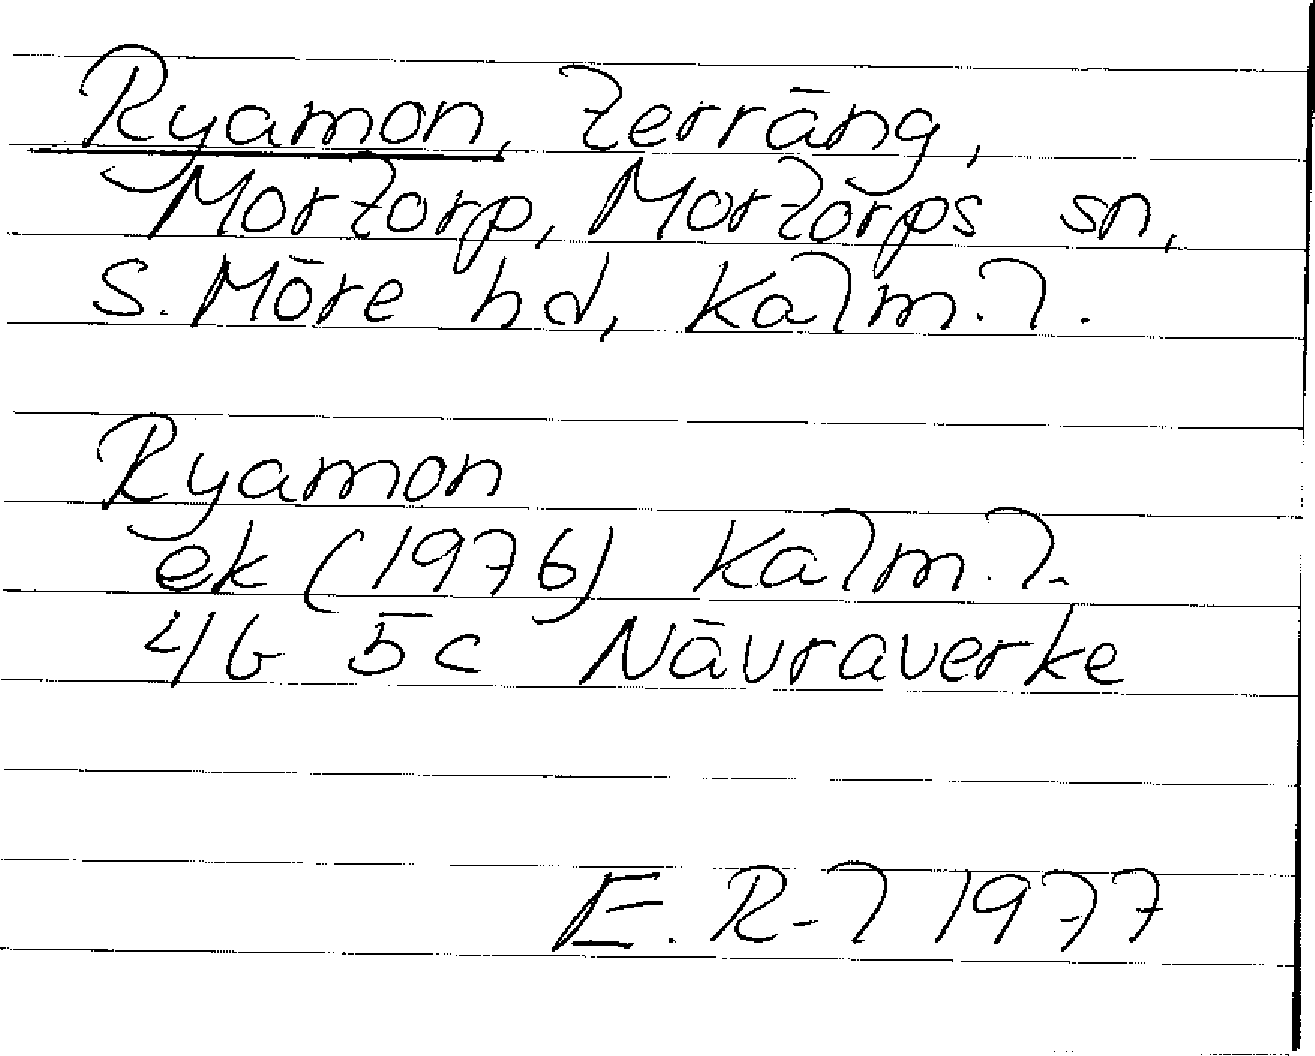 Ryamon, terräng,
Mortorp, Mortorps sn,
S. Möre hd, Kalm. l.
Ryamon
ek (1976) Kalm. l.
4G 5c Nävraverke
E. R-l 1977